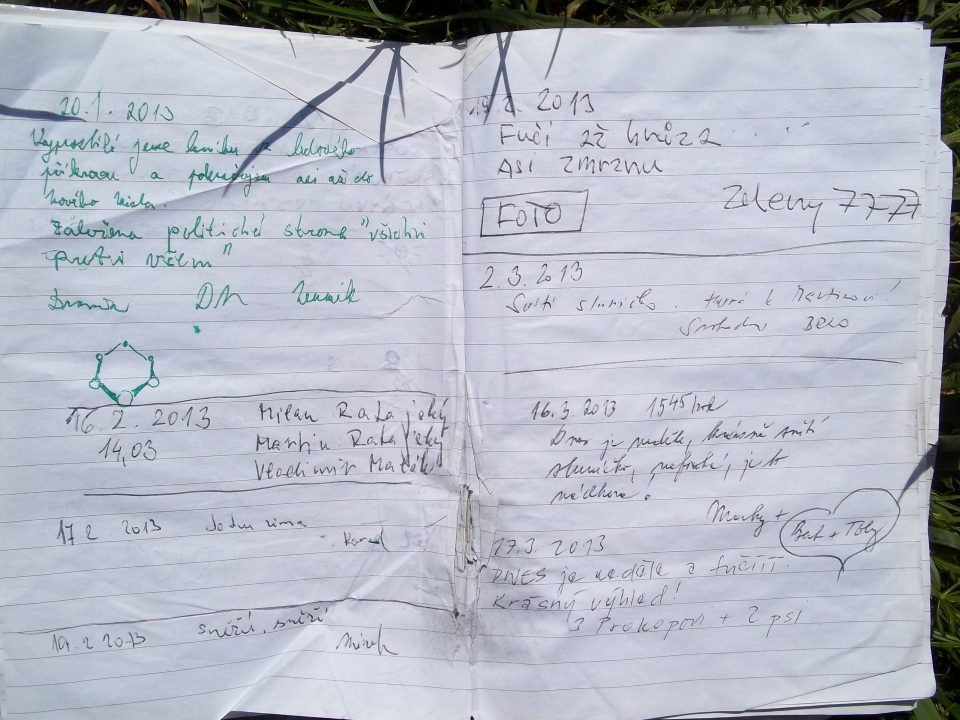 20.1.2013
Vyprostili jsme knihu z ledového
příkrovu a pokračujem asi až do
nového místa.
Založena politická strana "všichni
proti všem"
16.2.2013 Milan Ratajský
14,03 Martin Ratajský
Vladimír
17.2 2013 zima
Karel
19.2 2013 sněží, sněží
Mirek
2.2013
Fučí až hvízá
Asi zmrznu
FOTO
Zeleny 7777
2.3.2013
Svítí sluníčko.
Svoboda
16.3.2013 1545 hod
Dnes je neděle, krásně svítí
sluníčko, nefouká, je to
nádhera.
+
Bert + Toby
17.3.2013
DNES je neděle a fučííí
Krásný výhled!
3 Prokopovi + 2 psi